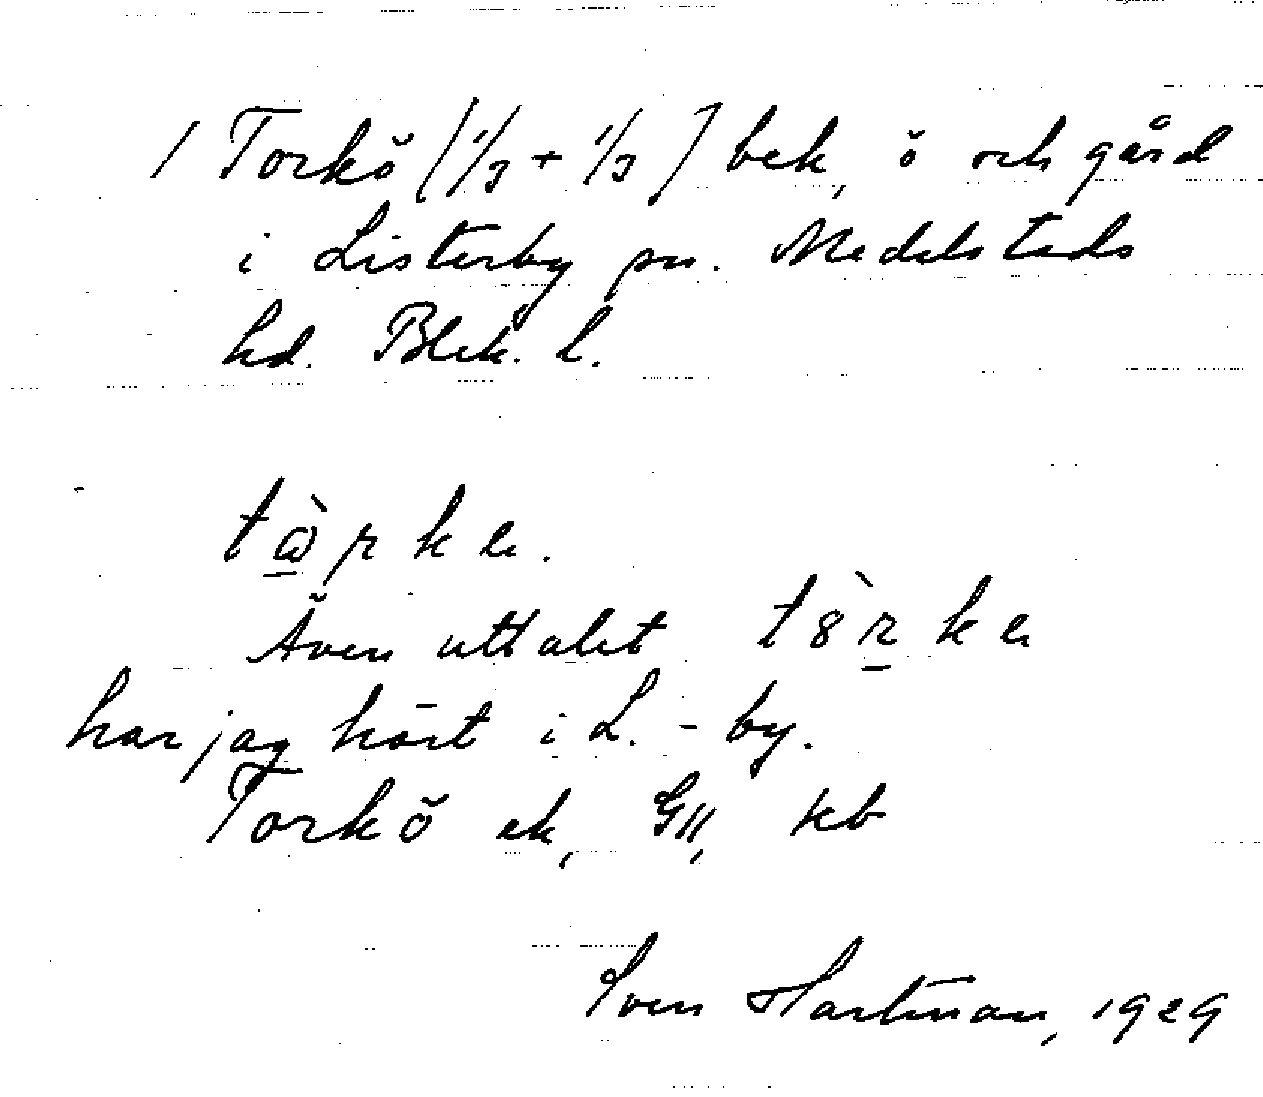 1 Torkö (1/3 + 1/3) bek, ö och gård
i Listerby sn. Medelstads
hd. Blek. l.
tὼrke.
Även uttalet t8̀rke
har jag hört i L.-by.
Torkö ek, GII, kb
Sven Hartman, 1929